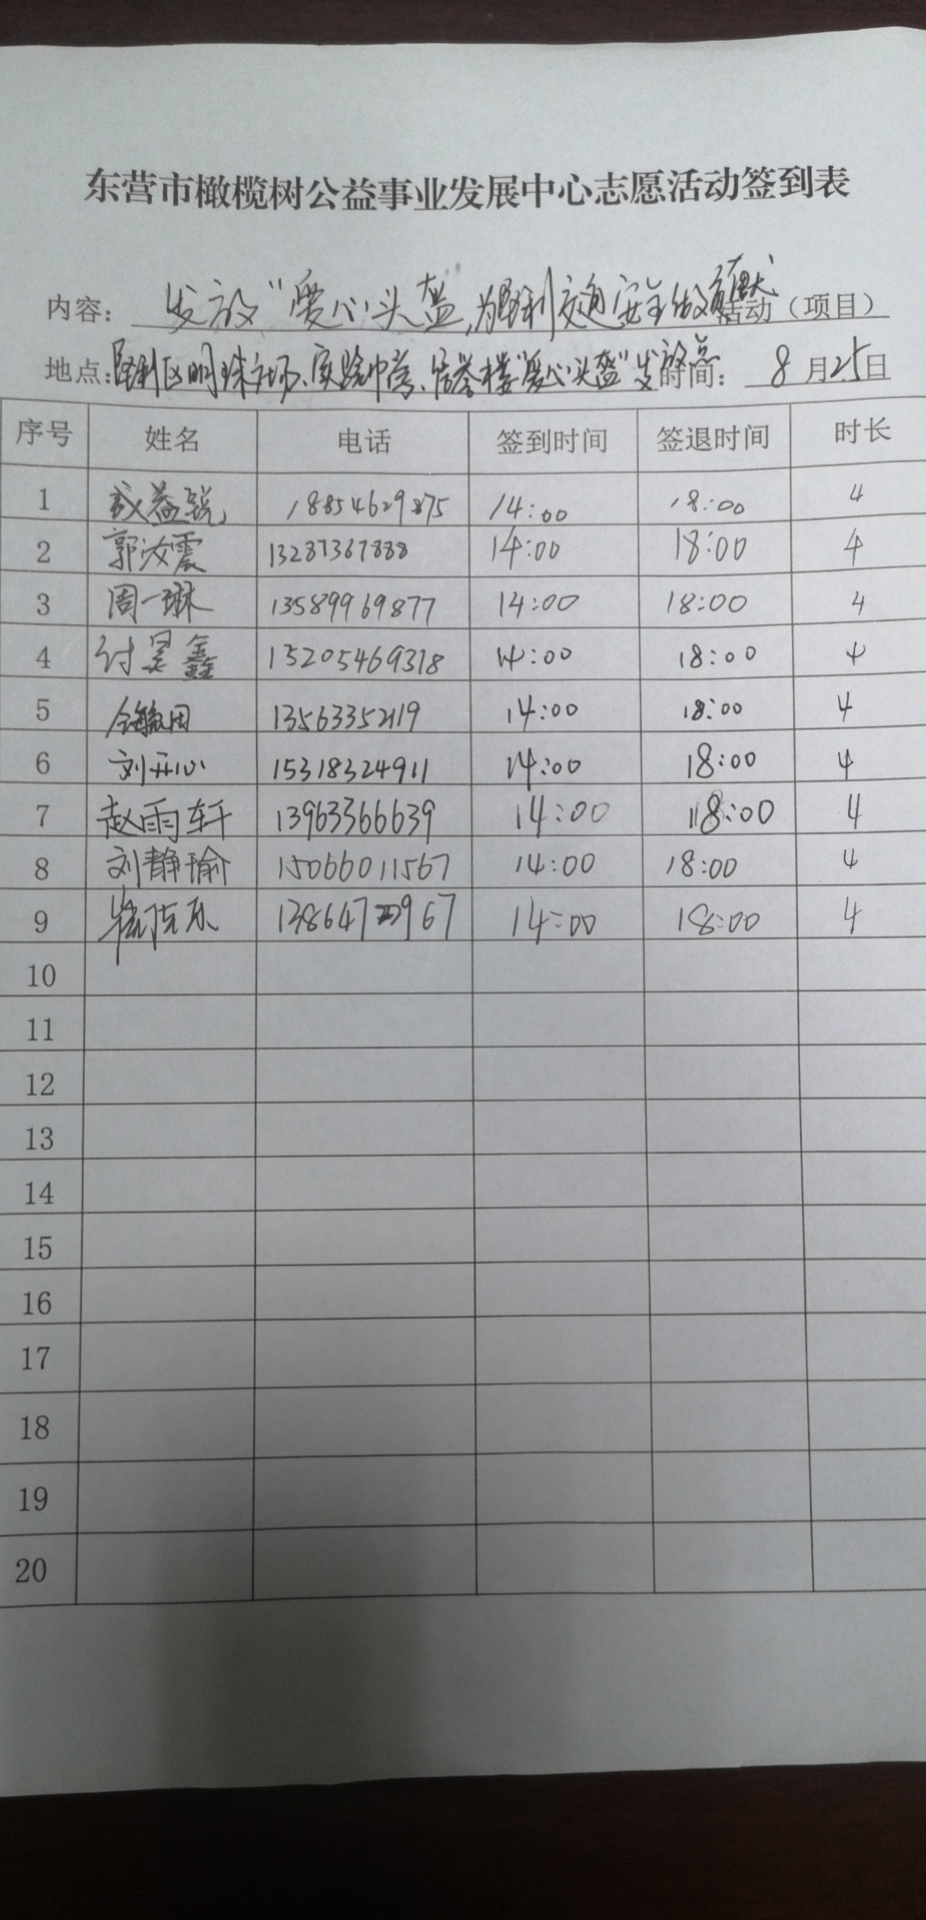 东营市橄榄树公益事业发展中心志愿活动签到表
内容：发放"爱心头盔,为垦利交通安全做贡献活动（项目）
地点：垦利区明珠广场、实验中学、信誉楼"爱心头盔"发放点 时间：8月25日
序号 姓名 电话 签到时间 签退时间 时长
1 成益锐 18854629875 14:00 18:00 4
2 郭汝震 13287367888 14:00 18:00 4
3 周一琳 13589969877 14:00 18:00 4
4 付昱鑫 15205469318 14:00 18:00 4
5 13563352119 14:00 18:00 4
6 刘开心 15318324911 14:00 18:00 4
7 赵雨轩 13963366639 14:00 18:00 4
8 刘静瑜 15066011567 14:00 18:00 4
9 14:00 18:00 4
10
11
12
13
14
15
16
17
18
19
20